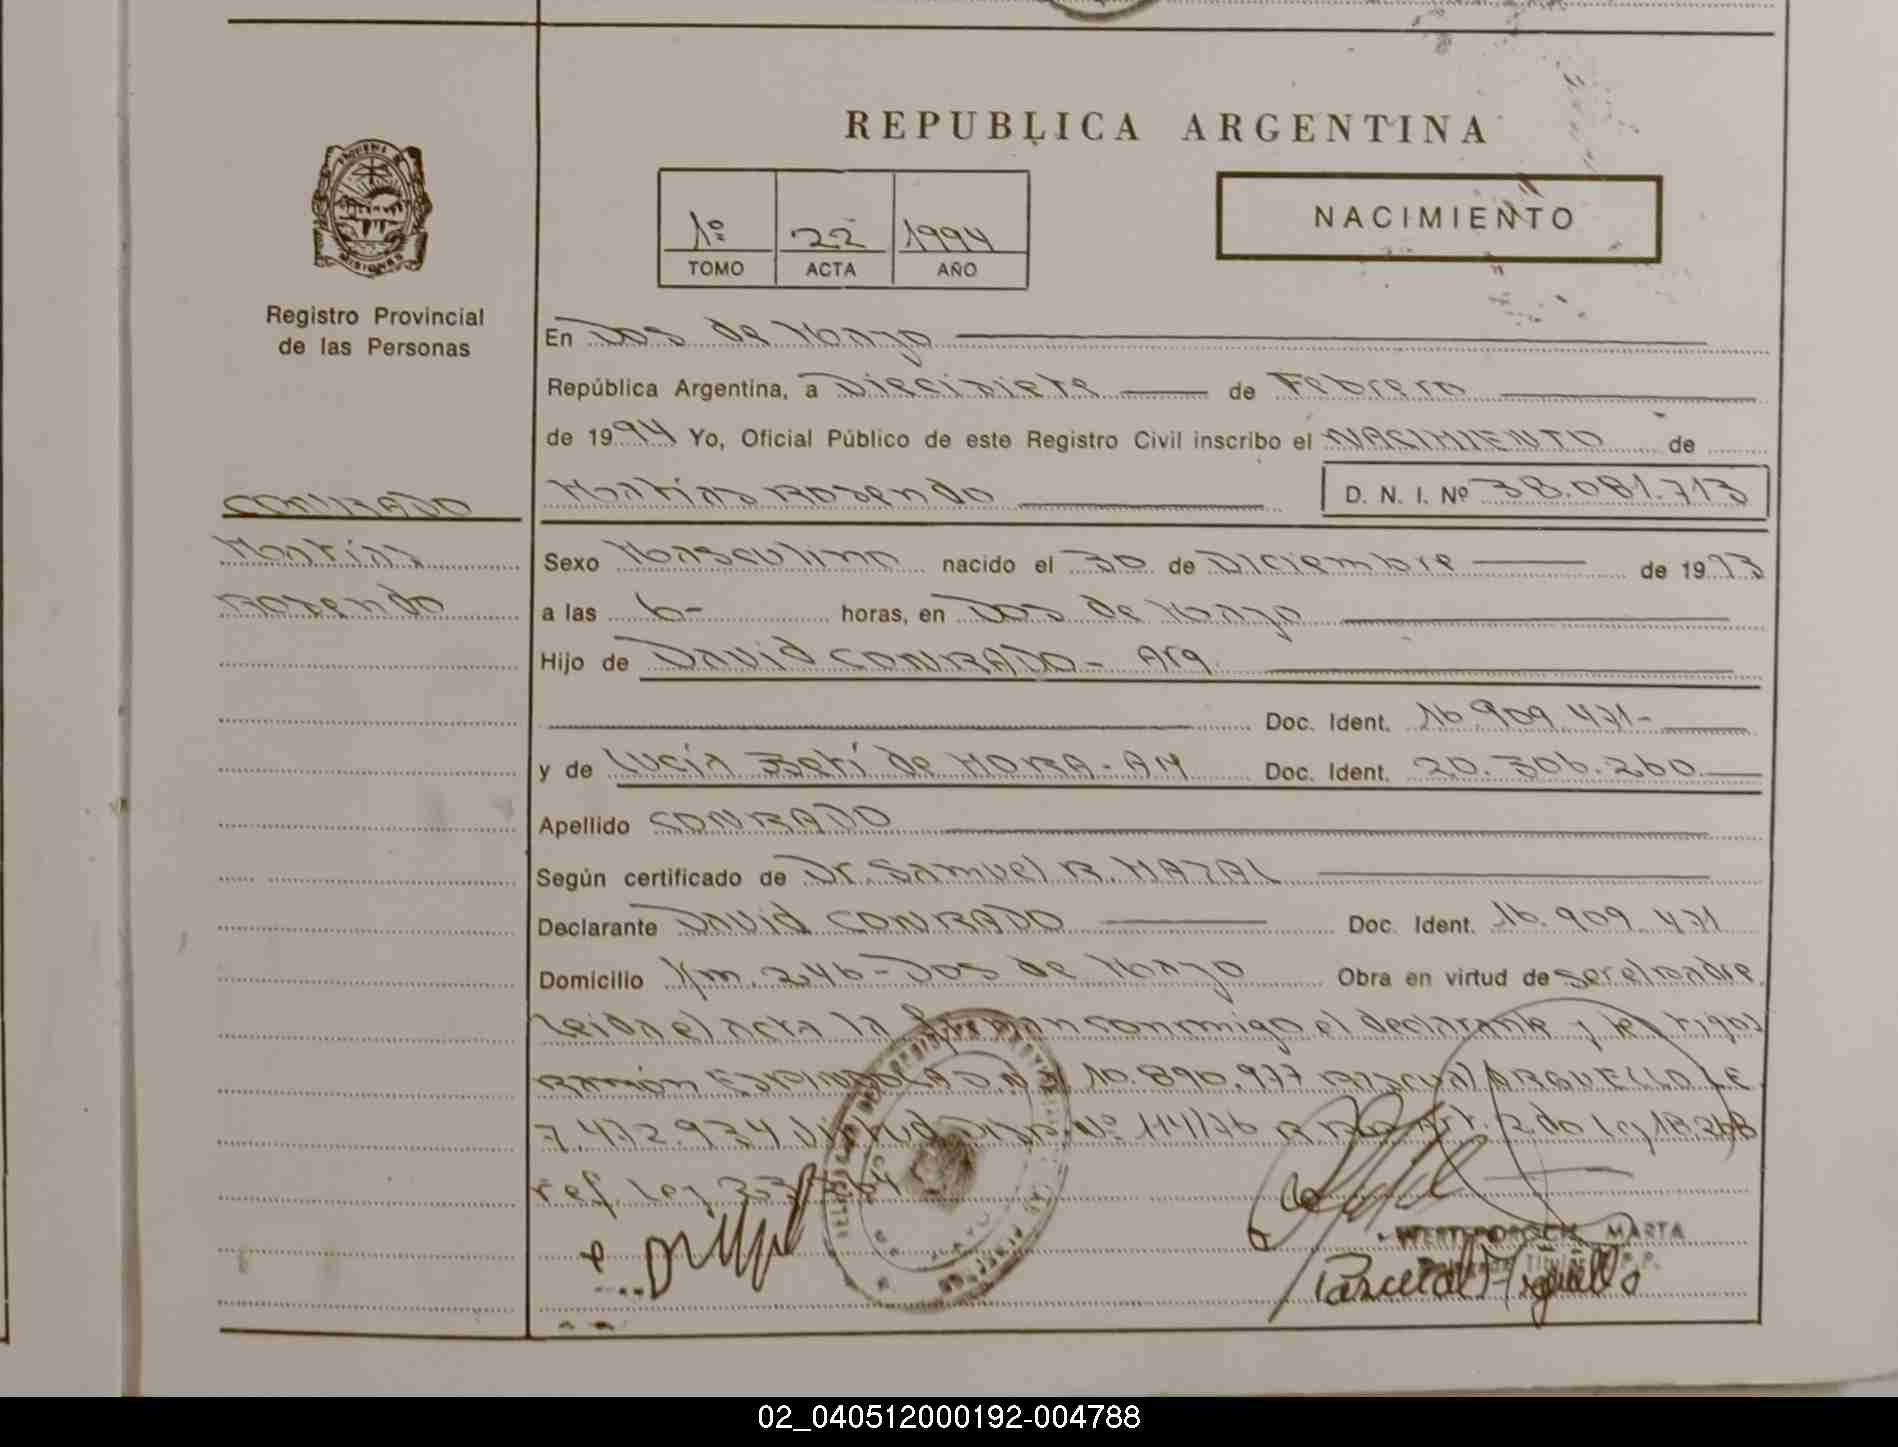 REPUBLICA ARGENTINA
PROVINCIA DE MISIONES
Registro Provincial
de las Personas
1º 22 1994
TOMO ACTA AÑO
NACIMIENTO
En Dos de Mayo
República Argentina, a Diecisiete de Febrero
de 1994 Yo, Oficial Público de este Registro Civil inscribo el NACIMIENTO de
CONRADO
Matías Rosendo D. N. I. Nº 38.081.713
Matías
Rosendo
Sexo Masculino nacido el 30 de Diciembre de 1993
a las 6- horas, en Dos de Mayo
Hijo de David CONRADO - Arg.
Doc. Ident. 16.909.471-
y de Lucía de MORA - Doc. Ident. 20.306.260
Apellido CONRADO
Según certificado de Dr. Samuel R.
Declarante David CONRADO Doc. Ident. 16.909.471
Domicilio Km. 246 - Dos de Mayo Obra en virtud de ser el padre
Leida el acta la firman conmigo el declarante y testigos
Ramón ESPINDOLA D.N.I. 10.890.977 Pascual ARGUELLO L.E.
7.472.934 Virtud Disp. Nº 114/76 Art. 2do Ley 18.248
ref. Ley
MARTA
Pascual Arguello
02_040512000192-004788